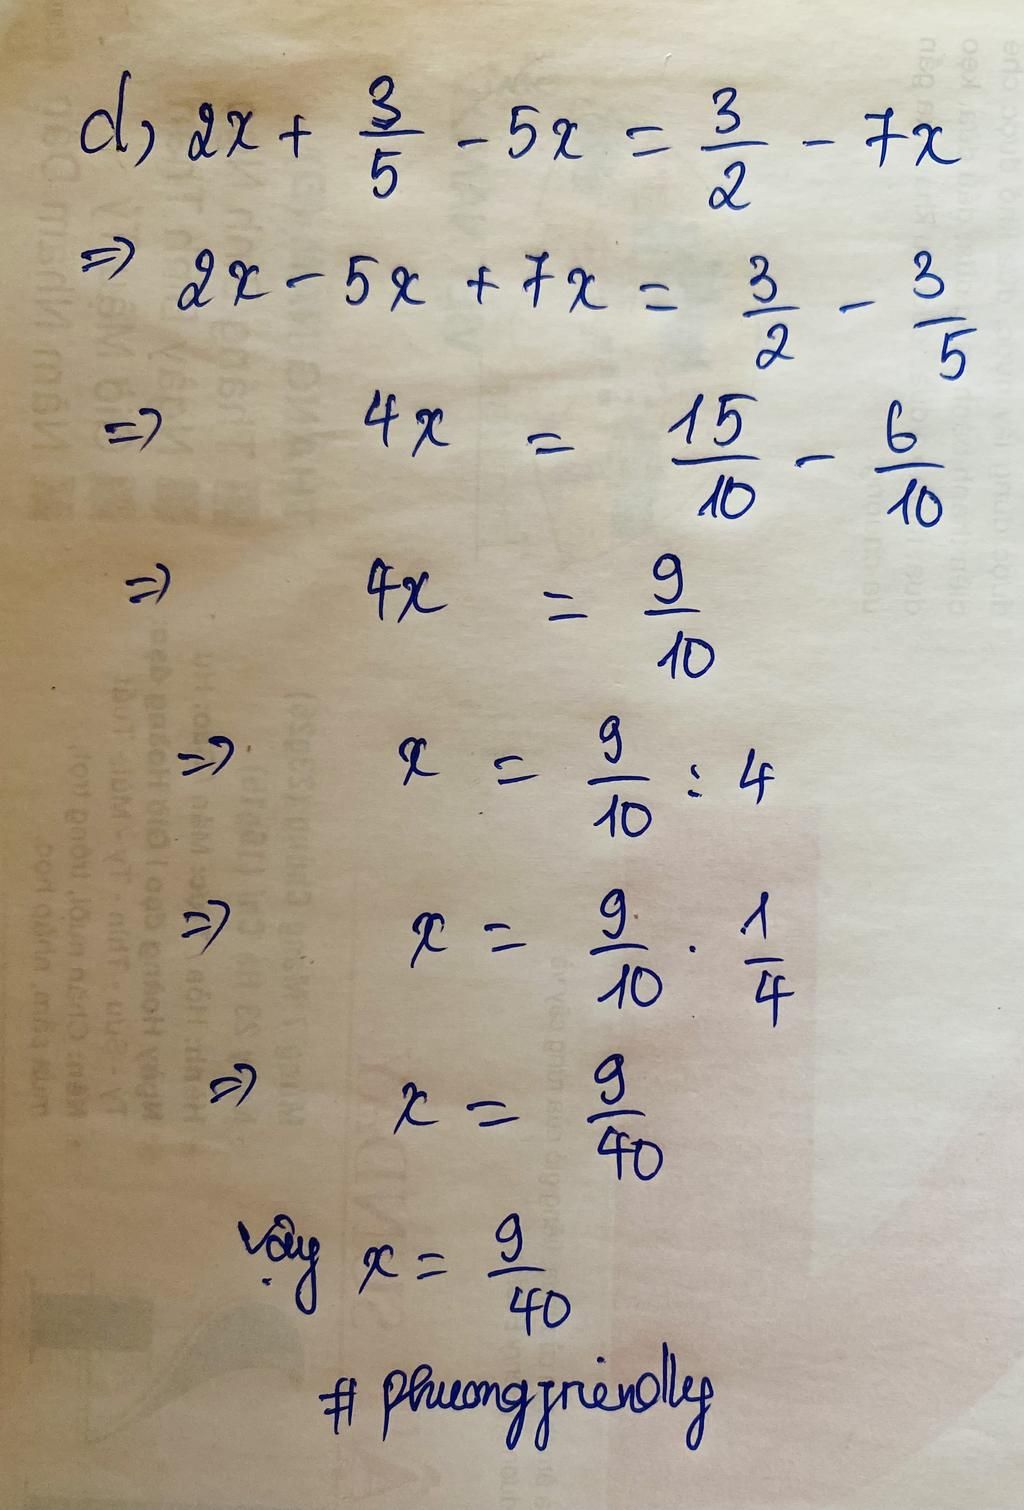 d, 2x + 3/5 - 5x = 3/2 - 7x
=> 2x - 5x + 7x = 3/2 - 3/5
=> 4x = 15/10 - 6/10
=> 4x = 9/10
=> x = 9/10 : 4
=> x = 9/10 . 1/4
=> x = 9/40
Vậy x = 9/40
# phuongfriendly